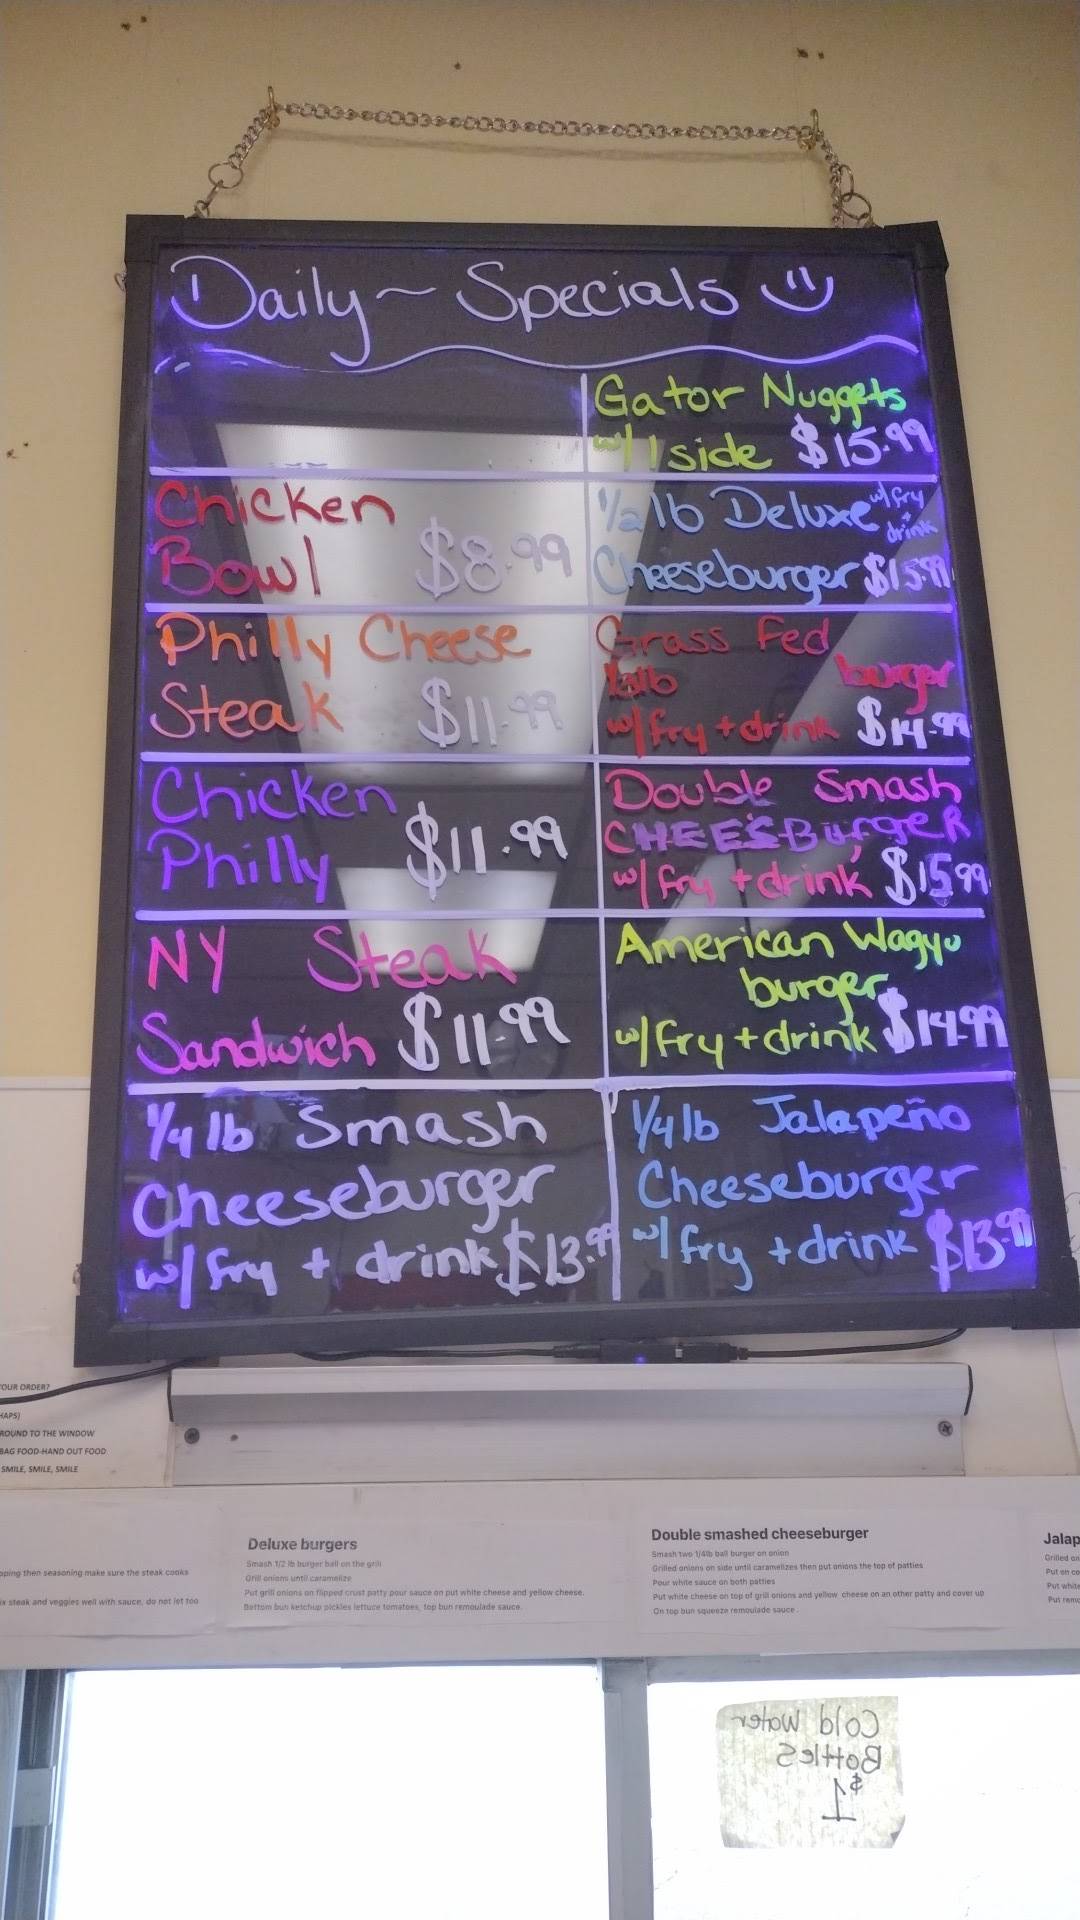 Daily ~ Specials
Gator Nuggets
w/ 1 side $15.99
Chicken
Bowl $8.99
1/2 lb Deluxe w/ fry + drink
Cheeseburger $15.99
Philly Cheese
Steak $11.99
Grass Fed
burger
w/ fry + drink $14.99
Chicken
Philly $11.99
Double Smash
CHEESBurgeR
w/ fry + drink $15.99
NY Steak
Sandwich $11.99
American Wagyu
burger
w/ fry + drink $14.99
1/4 lb Smash
Cheeseburger
w/ fry + drink $13.99
1/4 lb Jalapeño
Cheeseburger
w/ fry + drink $13.99
OUR ORDER?
HAPS)
ROUND TO THE WINDOW
BAG FOOD-HAND OUT FOOD
SMILE, SMILE, SMILE
then seasoning make sure the steak cooks
steak and veggies well with sauce, do not let too
Deluxe burgers
Smash 1/2 lb burger ball on the grill
Grill onions until caramelize
Put grill onions on flipped crust patty pour sauce on put white cheese and yellow cheese.
Bottom bun ketchup pickles lettuce tomatoes, top bun remoulade sauce.
Double smashed cheeseburger
Smash two 1/4lb ball burger on onion
Grilled onions on side until caramelizes then put onions the top of patties
Pour white sauce on both patties
Put white cheese on top of grill onions and yellow cheese on an other patty and cover up
On top bun squeeze remoulade sauce .
Jalap
Grilled on
Put on co
Put white
Put remo
Cold Water
Bottles
$1